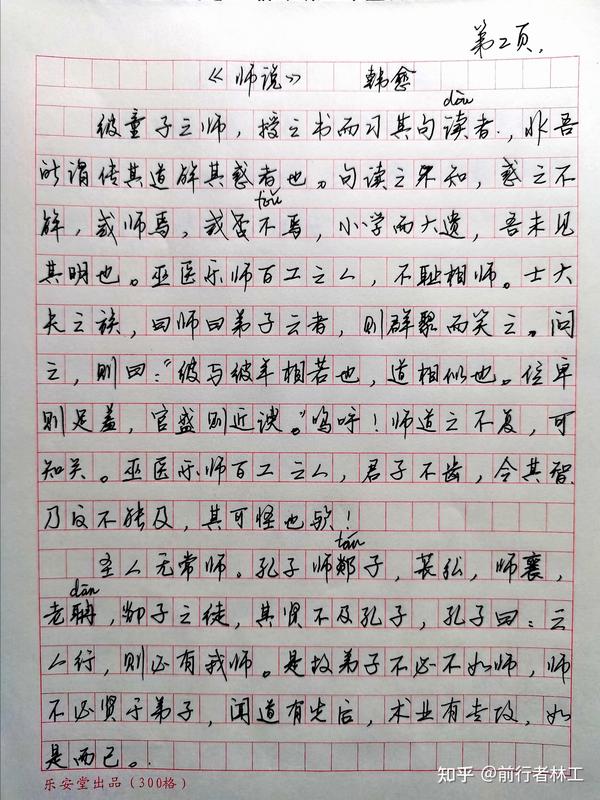 第2页.
《师说》 韩愈
dòu
彼童子之师，授之书而习其句读者.，非吾
所谓传其道解其惑者也。句读之不知，惑之不
fǒu
解，或师焉，或否不焉，小学而大遗，吾未见
其明也。巫医乐师百工之人，不耻相师。士大
夫之族，曰师曰弟子云者，则群聚而笑之。问
之，则曰："彼与彼年相若也，道相似也。位卑
则足羞，官盛则近谀。"呜呼！师道之不复，可
知矣。巫医乐师百工之人，君子不齿，今其智
乃反不能及，其可怪也欤！
tán
圣人无常师。孔子师郯子，苌弘，师襄，
dān
老聃，郯子之徒，其贤不及孔子，孔子曰：三
人行，则必有我师。是故弟子不必不如师，师
不必贤于弟子，闻道有先后，术业有专攻，如
是而已。
乐安堂出品（300格）
知乎 @前行者林工